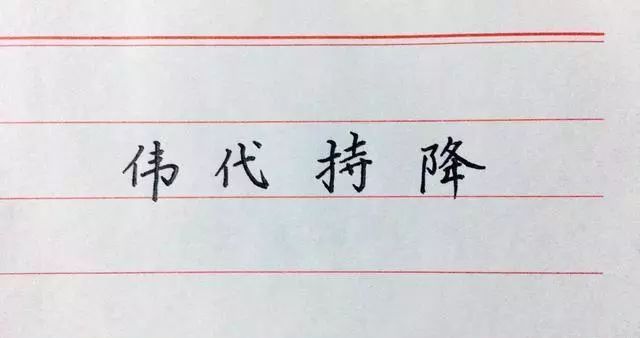 伟代持降